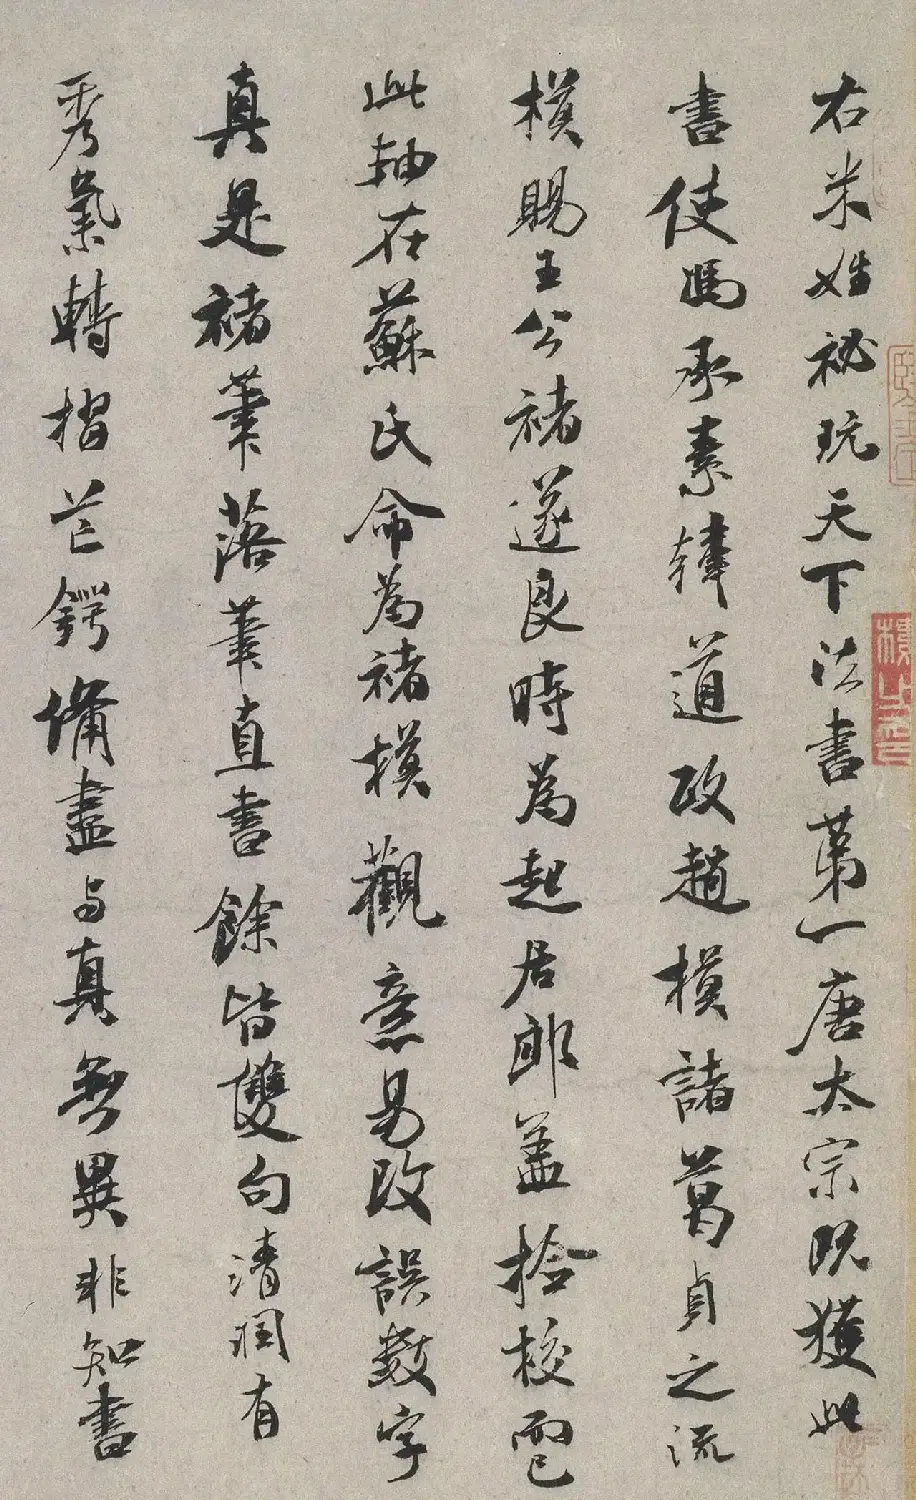 右米姓祕玩天下法書第一唐太宗既獲此
書使馮承素韓道政趙模諸葛貞之流
模賜王公褚遂良時為起居郎蓋撿校而已
此軸在蘇氏命為褚模觀意易改誤數字
真是褚筆落筆直書餘皆雙句清潤有
秀氣轉摺芒鍔備盡与真無異非知書